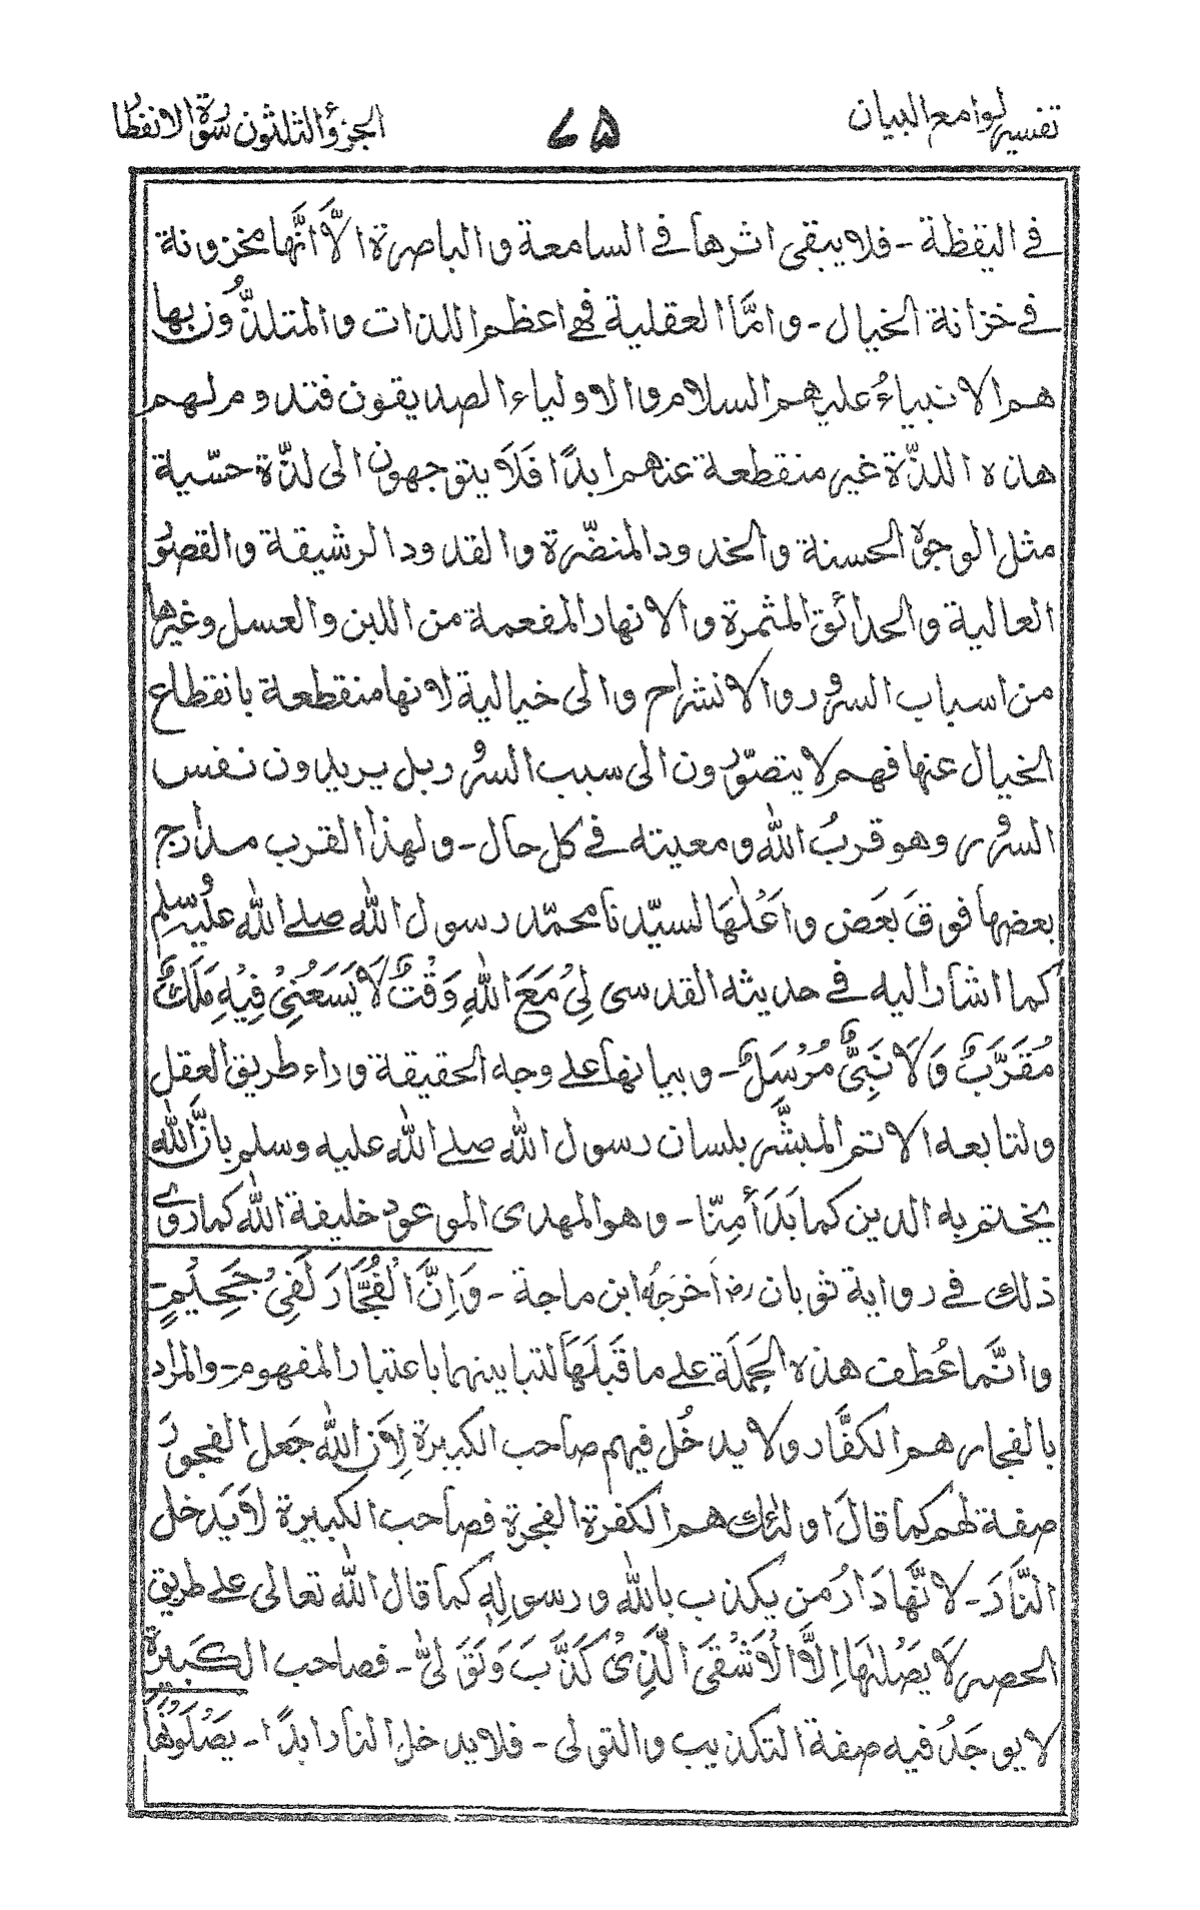 تفسير لوامع البيان ٦٥ الجزؤ الثلثون سورة الانفطار
في اليقظة - فلا يبقى اثرها في السامعة والباصرة الاَّ انَّها مخزونة
في خزانة الخيال - وامَّا العقلية فهي اعظم اللذات والمتلذُّون بها
هم الانبياءُ عليهم السلام والاولياء الصديقون فتدوم لهم
هذه اللذّة غير منقطعة عنهم ابدًا فَلَا يتوجهون الى لذّة حسّية
مثل الوجوه الحسنة والخدود المنضّرة والقدود الرشيقة والقصور
العالية والحدائق المثمرة والانهار المفعمة من اللبن والعسل وغيرها
من اسباب السرور والانشراح والى خيالية لانها منقطعة بانقطاع
الخيال عنها فهم لا يتصوّرون الى سبب السرور بل يريدون نفس
السرور وهو قربُ الله ومعيته في كل حال - ولهذا القرب مدارج
بعضها فوقَ بعَض واَعْلٰهَا لسيّدنا محمّد رسول الله صلے الله عليه وسلم
كما اشار اليه في حديثه القدسى لِىْ مَعَ اللهِ وَقْتٌ لَا يَسَعُنِىْ فِيْهِ مَلَكٌ
مُقَرَّبٌ وَلَا نَبِىٌّ مُرْسَلٌ - وبيانها على وجه الحقيقة وراء طريق العقل
ولتابعه الاتم المبشَّر بلسان رسول الله صلے الله عليه وسلم بانَّ الله
يختم به الدين كما بَدَأَ مِنّا - وهو المهدى الموعود خليفة الله كما روى
ذلك في رواية ثوبان رض اَخرجَهُ ابن ماجة - وَاِنَّ الْفُجَّارَ لَفِىْ جَحِيْمٍ -
وانَّما عُطف هذه الجُملَة على ما قَبلَهَا لتباينهما باعتبار المفهوم - والمراد
بالفجار هم الكفَّار ولا يدخُل فيهم صاحب الكبيرة لِاَنَّ الله جَعل الفجورَ
صفة لهم كما قالَ اولئك هم الكفرة الفجرة فصاحب الكبيرة لَا يَدخل
النَّارَ - لانَّهَا دَارُ من يكذب بالله ورسولِهٖ كما قال الله تعالى على طريق
الحصر لَا يَصْلٰهَا اِلَّا الْاَشْقَى الَّذِىْ كَذَّبَ وَتَوَلّٰى - فصاحب الكبيرة
لا يوجَدُ فيه صفة التكذيب والتولى - فلا يدخل النار ابدًا - يَصْلَوْنَهَا